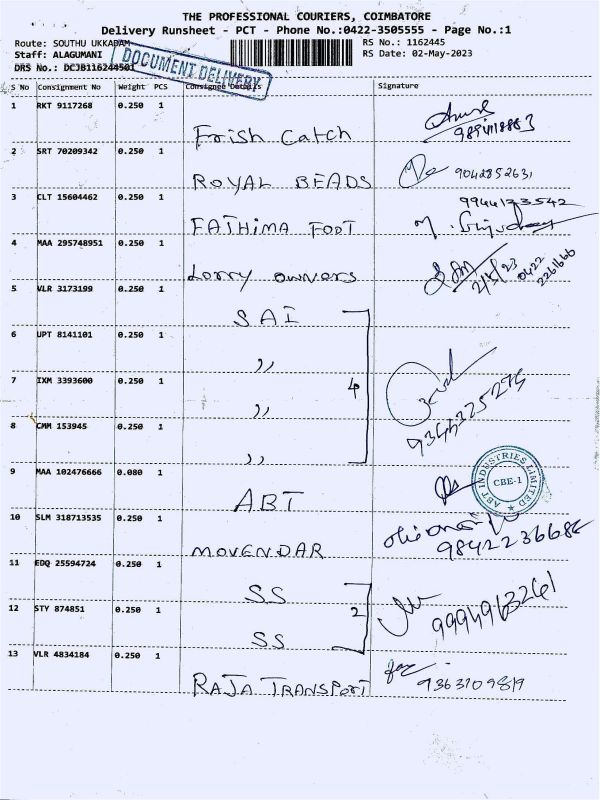 THE PROFESSIONAL COURIERS, COIMBATORE
Delivery Runsheet - PCT - Phone No.:0422-3505555 - Page No.:1
Route: SOUTHU UKKADAM
RS No.: 1162445
Staff: ALAGUMANI
RS Date: 02-May-2023
DRS No.: DCJB116244501
DOCUMENT DELIVERY
S No Consignment No Weight PCS Consignee Details Signature
1 RKT 9117268 0.250 1
Frish Catch
2 SRT 70209342 0.250 1
ROYAL BEADS 9042852631
3 CLT 15604462 0.250 1
9944173542
FATHIMA FOOT
4 MAA 295748951 0.250 1
Lorry owners 2/5/23 0422
2261666
5 VLR 3173199 0.250 1
SAI
6 UPT 8141101 0.250 1
,,
7 IXM 3393600 0.250 1
,, 4
9344325274
8 CMM 153945 0.250 1
,,
9 MAA 102476666 0.080 1
ABT
ABT INDUSTRIES LIMITED
CBE-1
10 SLM 318713535 0.250 1
MOVENDAR 9842236686
11 EDQ 25594724 0.250 1
SS
9994963261
12 STY 874851 0.250 1
2
SS
13 VLR 4834184 0.250 1
RAJA TRANSPORT 9363109819